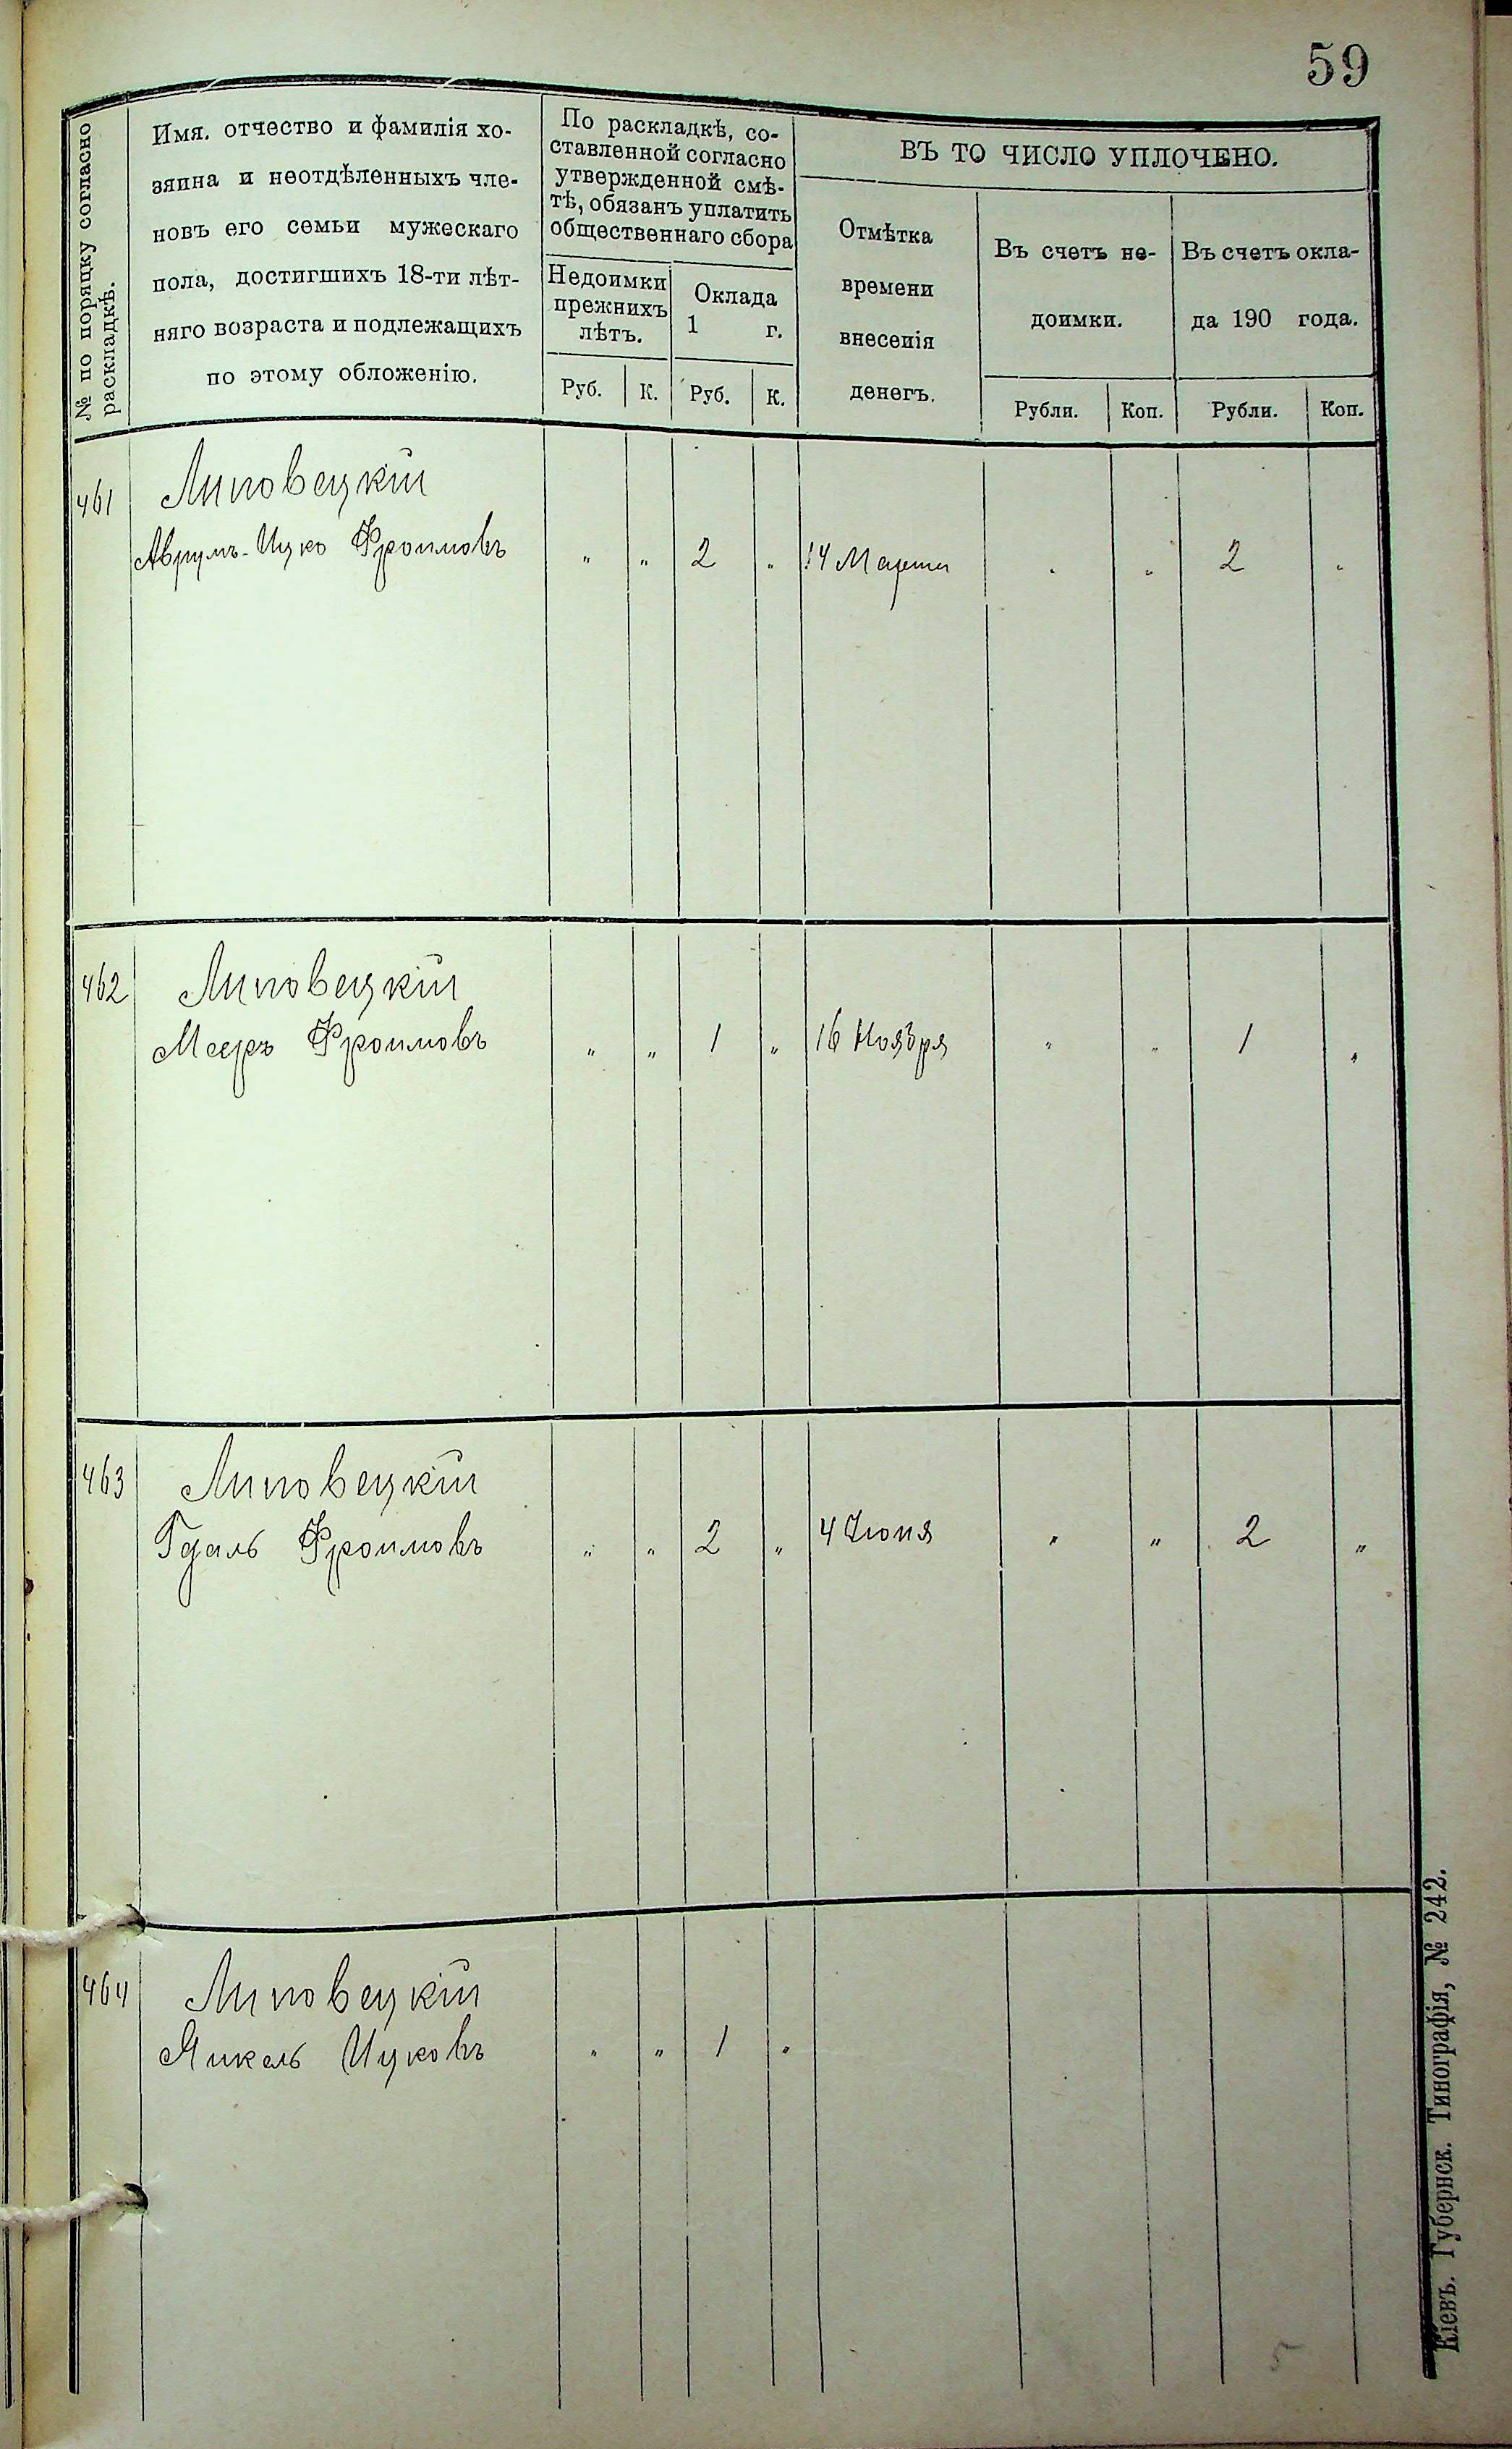 59
№ по порядку согласно
раскладкѣ.
Имя. отчество и фамилія хо-
зяина и неотдѣленныхъ чле-
новъ его семьи мужескаго
пола, достигшихъ 18-ти лѣт-
няго возраста и подлежащихъ
по этому обложенію.
По раскладкѣ, со-
ставленной согласно
утвержденной смѣ-
тѣ, обязанъ уплатить
общественнаго сбора
Недоимки
прежнихъ
лѣтъ.
Оклада
1 г.
Руб. К. Руб. К.
ВЪ ТО ЧИСЛО УПЛОЧЕНО.
Отмѣтка
времени
внесенія
денегъ.
Въ счетъ не-
доимки.
Въ счетъ окла-
да 190 года.
Рубли. Коп. Рубли. Коп.
461 Липовецкій
Аврумъ-Ицко Фроимовъ " " 2 " 14 Марта " " 2 "
462 Липовецкій
Мееръ Фроимовъ " " 1 " 16 Ноября " " 1 "
463 Липовецкій
Гдаль Фроимовъ " " 2 " 4 Іюня " " 2 "
464 Липовецкій
Янкель Ицковъ " " 1 "
Кіевъ. Губернск. Типографія, № 242.